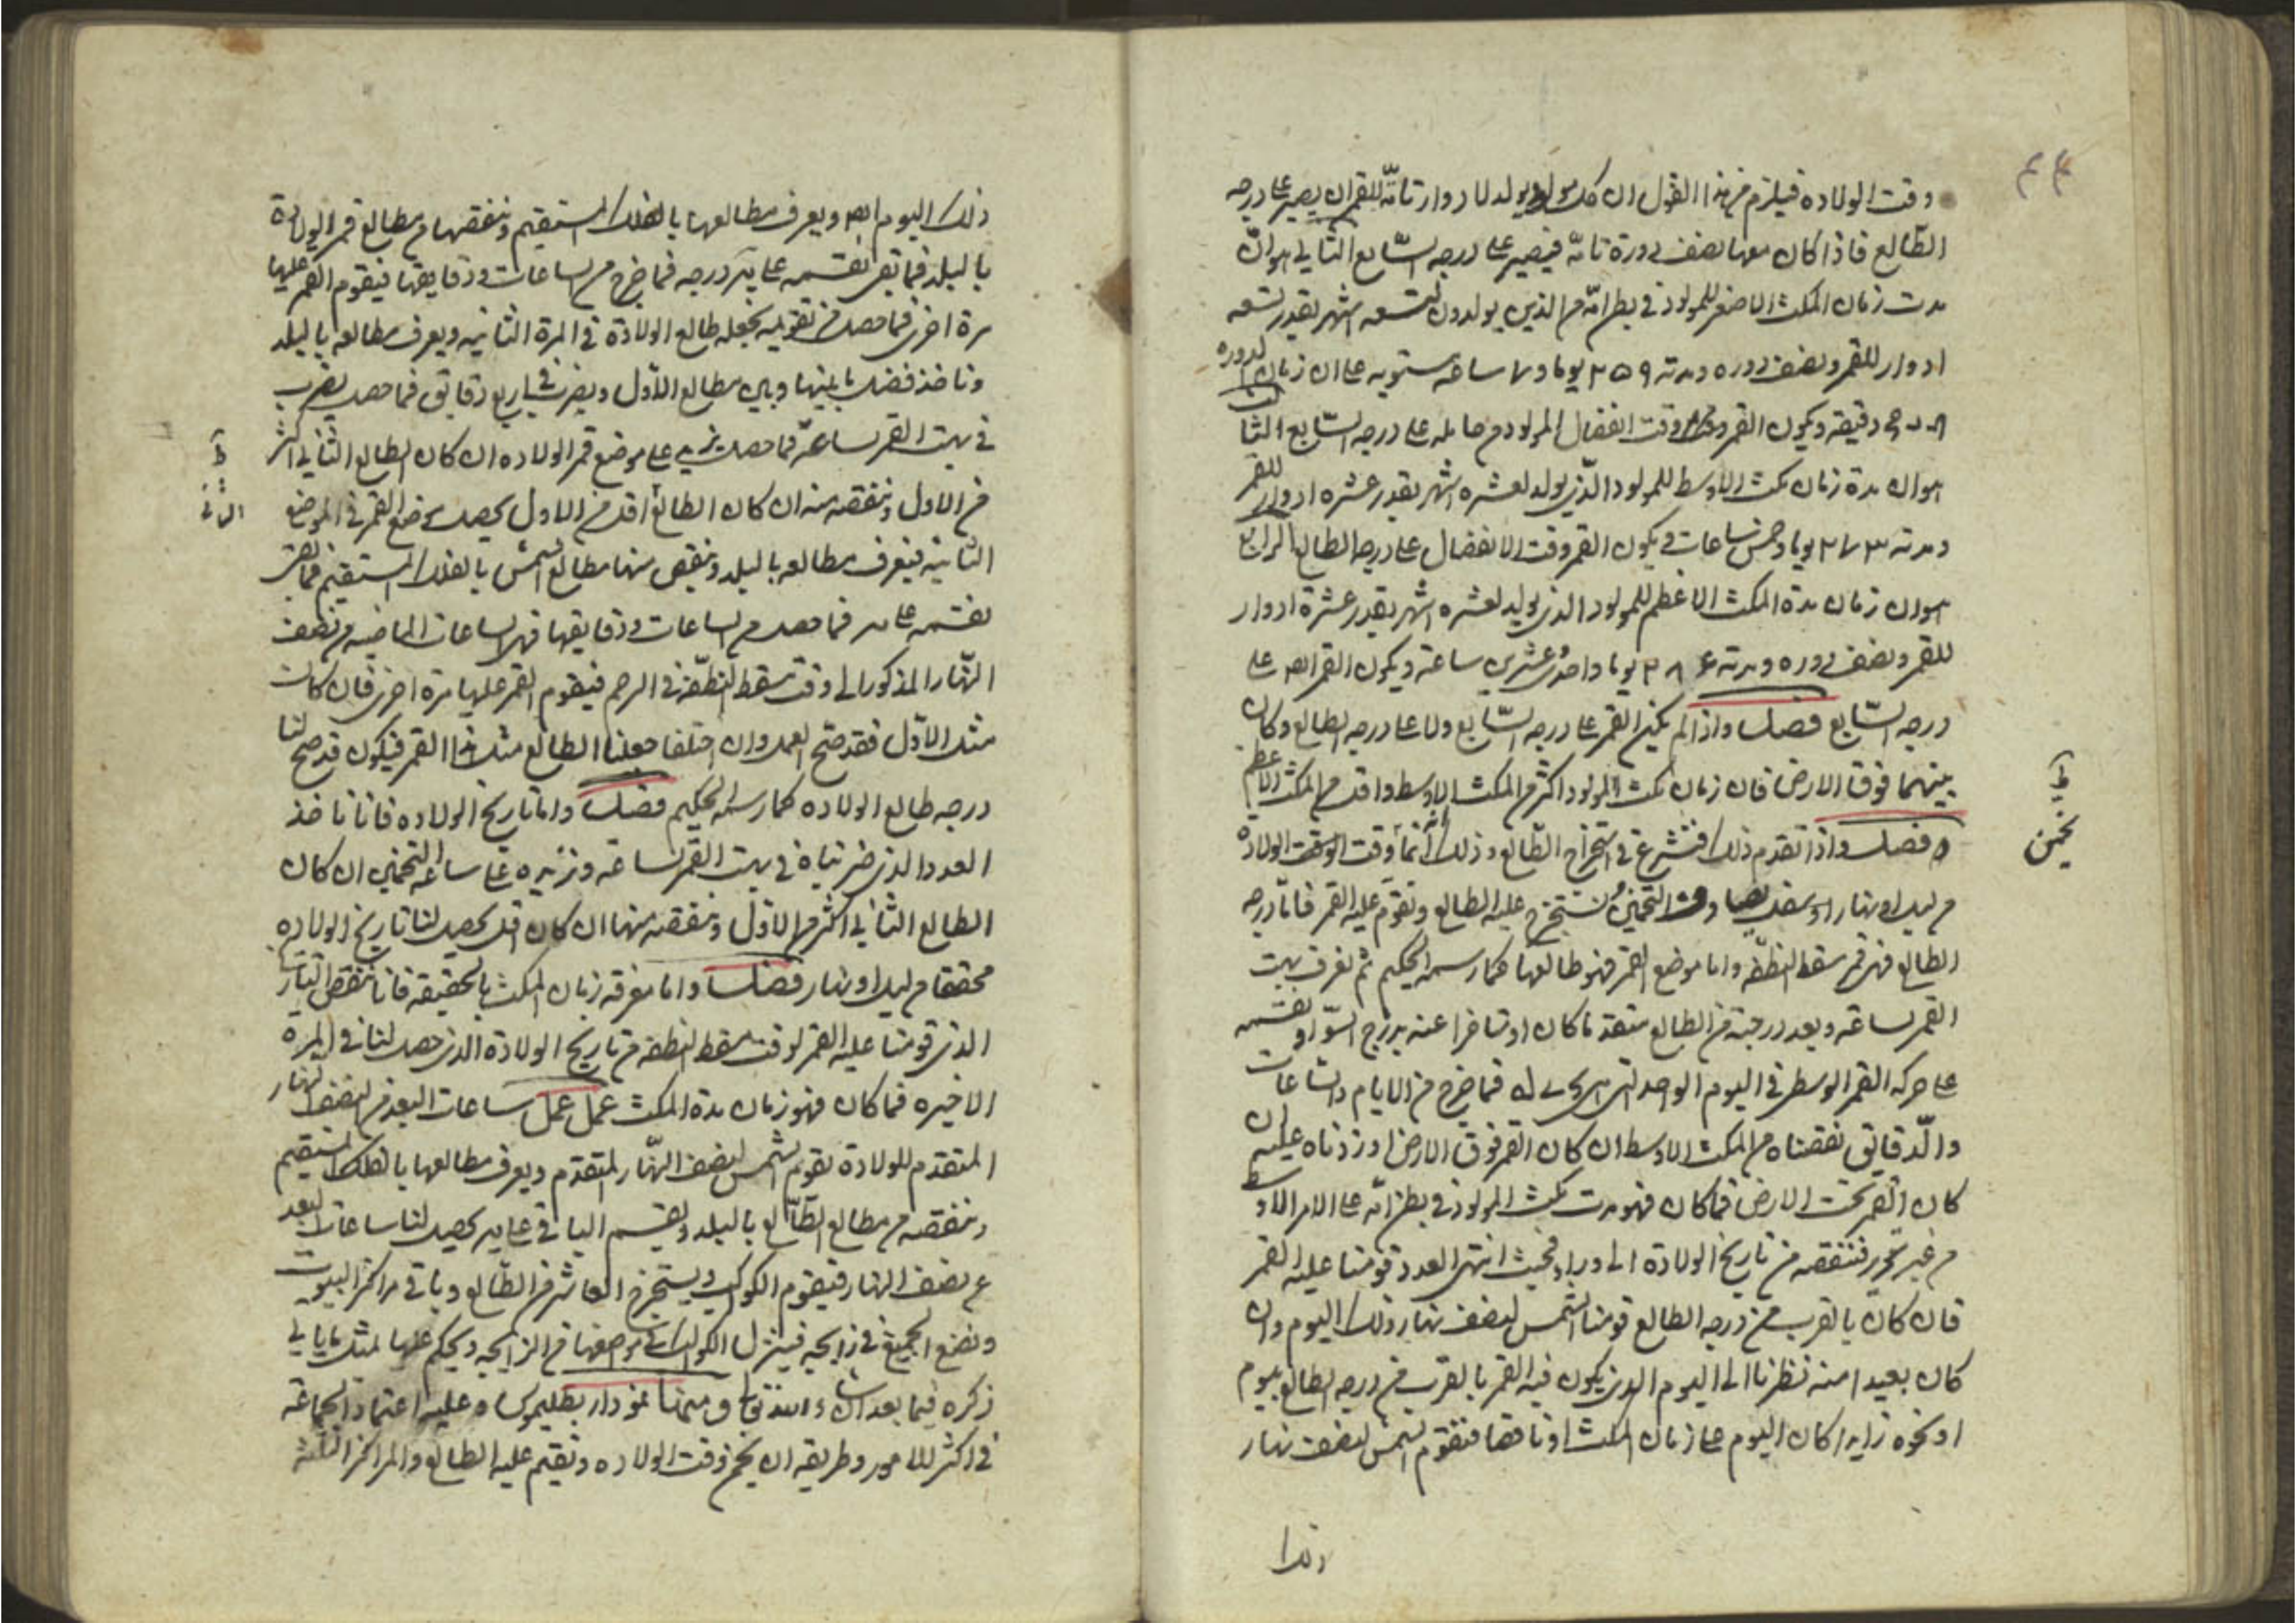 وقت الولاده فيلزم من هذا القول ان كل مولود يولد لادوار تامّة للقمر ان يصير على درجه
الطّالع فاذا كان معها نصف دورة تامّه فيصير على درجه السّابع الثاني هو انّ
مدت زمان المكث الاصغر للمولود في بطن امّه من الذين يولدون لتسعه اشهر بقدر تسعه
ادوار للقمر ونصف دوره ومدته ٢٥٩ يوما و ساعه مستويه على ان زمان الدوره
دقيقه ويكون القمر وقت انفصال المولود من حامله على درجه السّابع الثالث
هو ان مدة زمان مكث الاوسط للمولود الّذي يولد لعشره اشهر بقدر عشره ادوار للقمر
ومدته ٢٧٣ يوما وخمس ساعات ويكون القمر وقت الانفصال على درجه الطالع الرابع
هو ان زمان مدة المكث الاعظم للمولود الذي يولد لعشره اشهر بقدر عشرة ادوار
للقمر ونصف دوره ومدته ٢٨٦ يوما واحدى وعشرين ساعة ويكون القمر ايضا على
درجه السّابع فصل واذا لم يكن القمر على درجه السّابع ولا على درجه الطالع وكان
بينهما فوق الارض فان زمان مكث المولود اكثر من المكث الاوسط واقل من المكث الاعظم
فصل واذا تقدم ذلك فنشرع في استخراج الطّالع وذلك وقت الولادة
من ليل او نهار وقت التخمين ونستخرج عليه الطالع ونقوّم عليه القمر فامّا درجه
الطالع فهي قمر سقط النطفّه واما موضع القمر فهو طالعها كما رسمه الحكيم ثم نعرف بهت
القمر لساعه وبعد درجته من الطالع متقدما كان او متاخرا عنه بدرج السّوا ونقسمه
على حركه القمر الوسطى في اليوم الواحد التي هي فما خرج من الايام والساعات
والدّقايق نقصناه من المكث الاوسط ان كان القمر فوق الارض او زدناه عليه ان
كان القمر تحت الارض فما كان فهو مدت مكث المولود في بطن امّه على الامر الاوسط
من غير تحرير فننقصه من تاريخ الولادة الى ورا فحيث انتهى العدد قومنا عليه القمر
فان كان بالقرب من درجه الطالع قومنا الشمس لنصف نهار ذلك اليوم وان
كان بعيدا منه نظرنا الى اليوم الذي يكون فيه القمر بالقرب من درجه الطالع بيوم
او نحوه زايدا كان اليوم على زمان المكث او ناقصا فنقوم الشمس لنصف نهار
ذلك
تخمين
ذلك اليوم ايضا ويعرف مطالعها بالفلك المستقيم وننقصها من مطالع قمر الولادة
بالبلد فما بقي نقسمه على يه درجه فما خرج من الساعات ودقايقها فيقوم القمر عليها
مرة اخرى فما حصل من تقويمه نجعله طالع الولادة في المرة الثانيه ويعرف مطالعه بالبلد
وناخذ فضل ما بينها وبين مطالع الاوّل ويضرب في اربع دقايق فما حصل يضرب
في بهت القمر لساعة فما حصل يزيد على موضع قمر الولاده ان كان الطالع الثاني اكثر
من الاول وننقصه منه ان كان الطالع اقل من الاول يحصل موضع القمر في الموضع
الثانيه فيعرف مطالعه بالبلد وينقص منها مطالع الشمس بالفلك المستقيم فما بقي
نقسمه على يه فما حصل من الساعات ودقايقها فهي الساعات الماضيه من نصف
النّهار المذكور الى وقت مسقط النطّفة في الرحم فيقوم القمر عليها مرة اخرى فان كانت
مثل الاوّل فقد صحّ العمل وان اختلفا جعلنا الطالع مثل هذا القمر فيكون قد صح لنا
درجه طالع الولاده كما رسمه الحكيم فصل واما تاريخ الولاده فانا ناخذ
العدد الذي ضربناه في بهت القمر لساعه ونزيده على ساعه التخمين ان كان
الطالع الثاني اكثر من الاوّل وننقصه منها ان كان اقل يحصل لنا تاريخ الولاده
محققا من ليل او نهار فصل واما معرفه زمان المكث بالحقيقه فانا ننقص التاريخ
الذي قومنا عليه القمر لوقت مسقط النطفه من تاريخ الولادة الذي حصل لنا في المرة
الاخيره فما كان فهو زمان مدة المكث عمل عمل ساعات البعد من نصف النهار
المتقدم للولادة نقوم الشمس لنصف النّهار المتقدم ويعرف مطالعها بالفلك المستقيم
وننقصه من مطالع الطّالع بالبلد ونقسم الباقي على يه يحصل لنا ساعات البعد
عن نصف النهار فيقوم الكواكب ويستخرج العاشر من الطّالع وباقي مراكز البيوت
ونضع الجميع في زايجه فينزل الكواكب في موضعها من الزايجه ويحكم عليها لمثل ما ياتي
ذكره فيما بعد ان شاء الله تعالى نمودار بطليموس وعليه اعتماد الجماعة
في اكثر الامور وطريقه ان يخمن وقت الولاده ونقيم عليه الطالع والمراكز الثلثة
الثاني